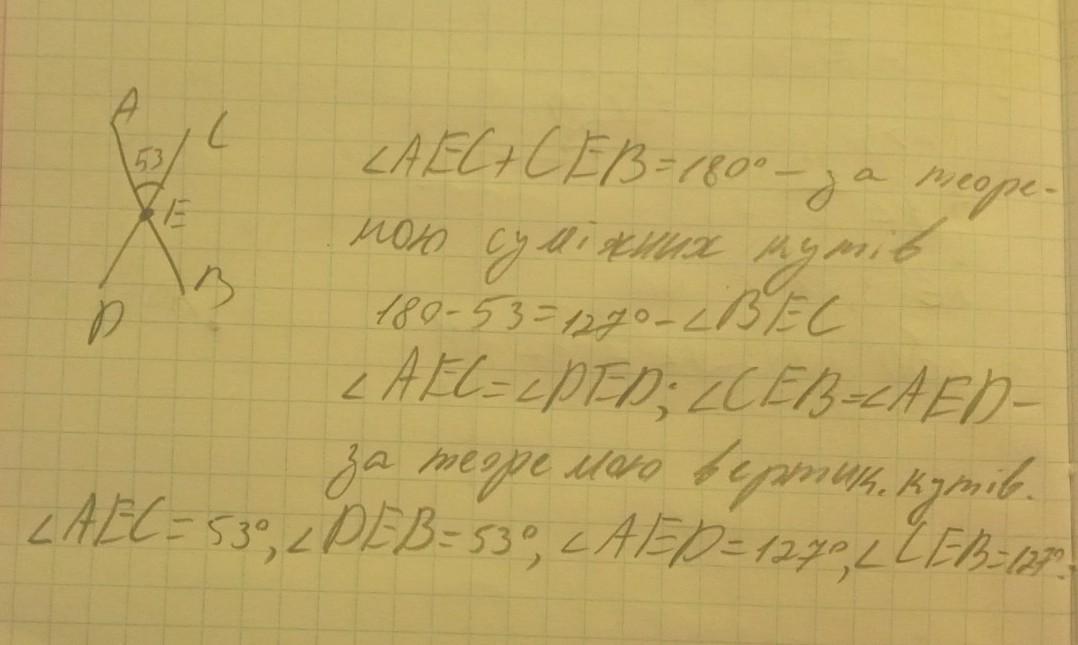 A
C
53
E
D
B
∠AEC+CEB=180°– за теоре-
мою суміжних кутів
180-53=127°-∠BEC
∠AEC=∠DED; ∠CEB=∠AED–
за теоремою вертик. кутів.
∠AEC=53°, ∠DEB=53°, ∠AED=127°, ∠CEB=127°.